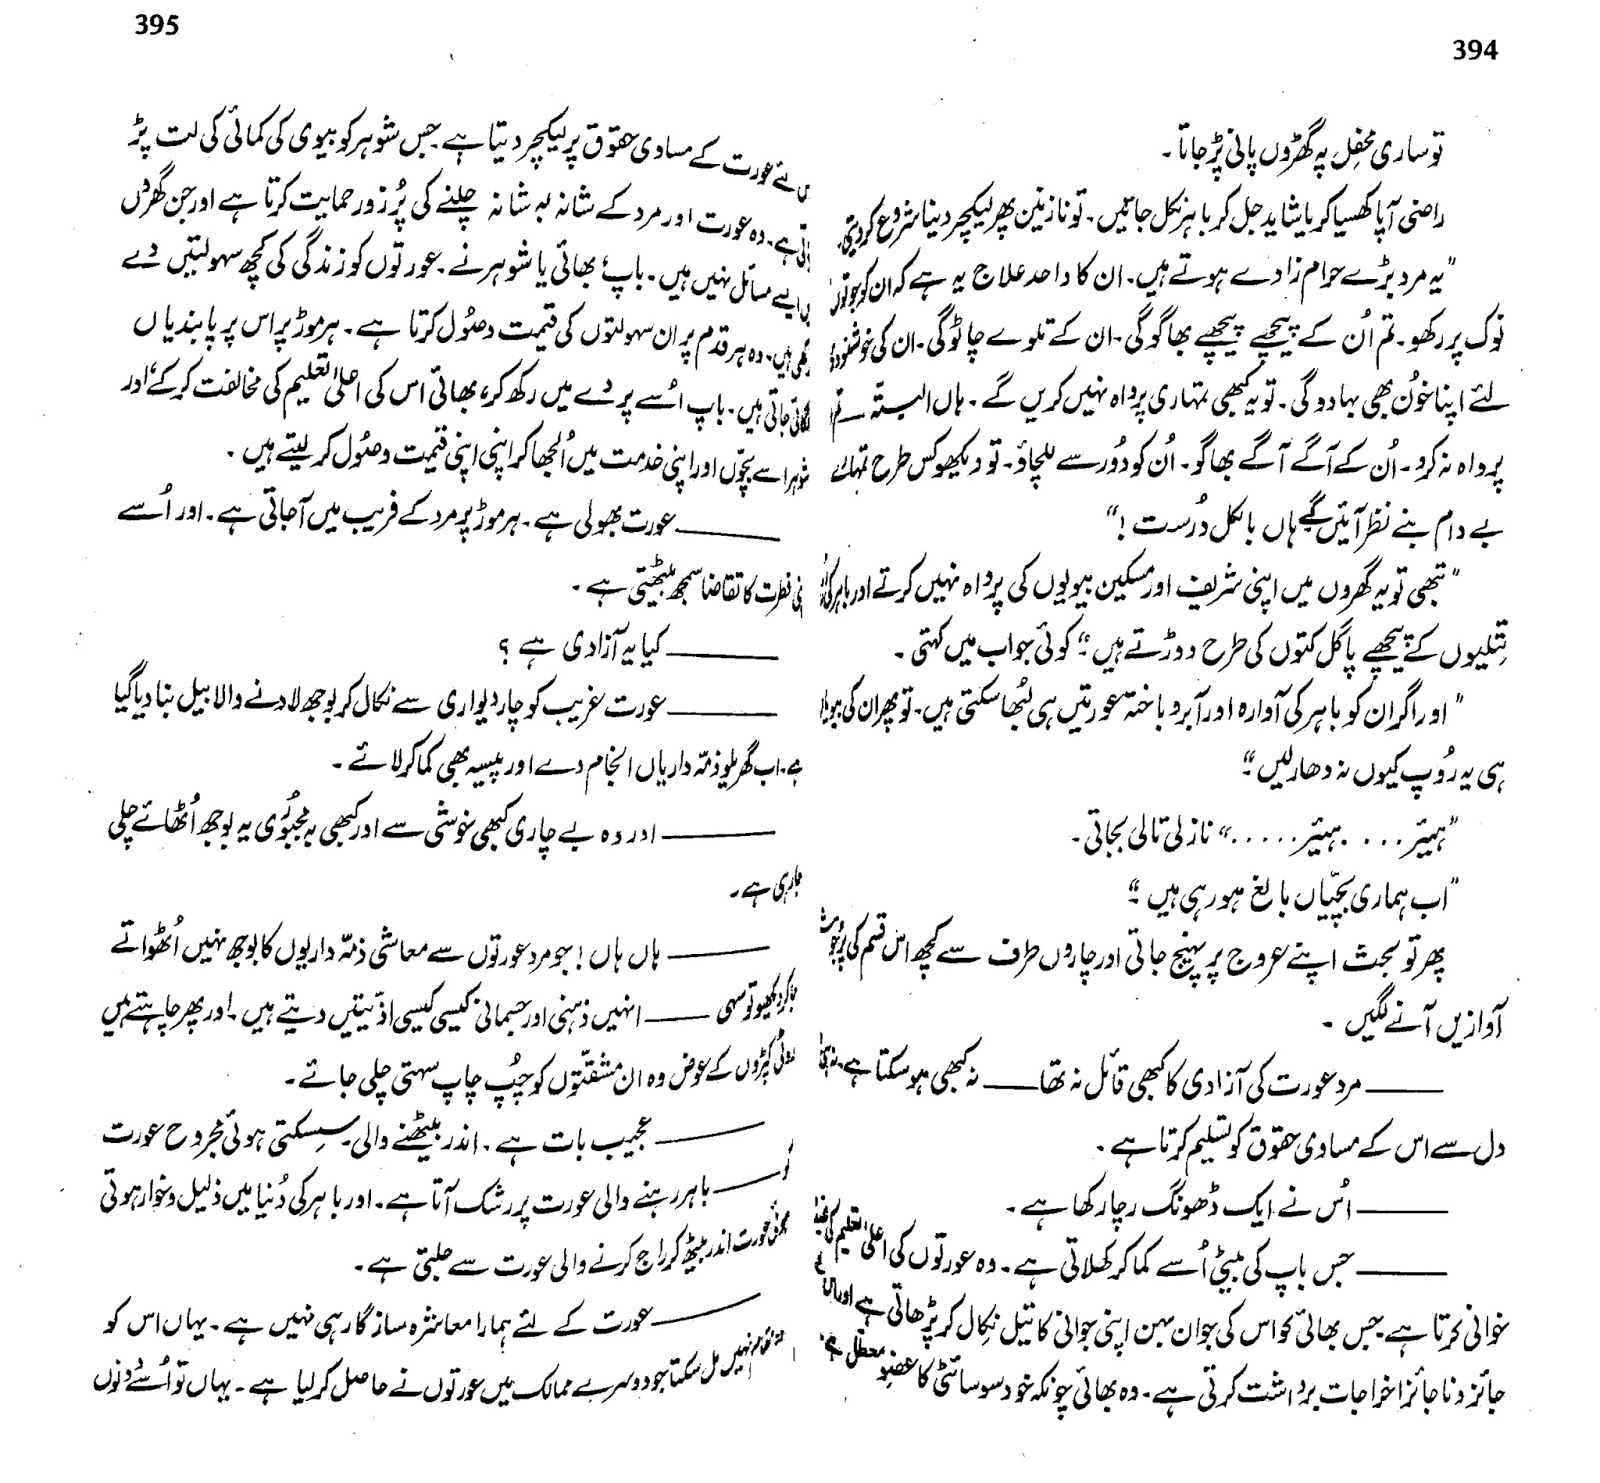 394
تو ساری محفل پہ گھڑوں پانی پڑ جاتا۔
راضی آپا کھسیا کر یا شاید جل کر باہر نکل جاتیں۔ تو نازنین پھر لیکچر دینا شروع کر دیتی۔
"یہ مرد بڑے حرام زادے ہوتے ہیں۔ ان کا واحد علاج یہ ہے کہ ان کو جوتوں
نوک پر رکھو۔ تم اُن کے پیچھے پیچھے بھاگو گی۔ ان کے تلوے چاٹو گی۔ ان کی
لئے اپنا خوُن بھی بہا دو گی۔ تو یہ کبھی تمہاری پرواہ نہیں کریں گے۔ ہاں البتہ تم
پرواہ نہ کرو۔ اُن کے آگے آگے بھاگو۔ اُن کو دُور سے للچاؤ۔ تو دیکھو کس طرح تمہارے
بے دام بنے نظر آئیں گے ہاں بالکل درُست !"
"تبھی تو یہ گھروں میں اپنی شریف اور مسکین بیویوں کی پرواہ نہیں کرتے اور باہر کی
تِتلیوں کے پیچھے پاگل کتوں کی طرح دوڑتے ہیں" کوئی جواب میں کہتی۔
"اور اگر ان کو باہر کی آوارہ اور آبرو باختہ عورتیں ہی لُبھا سکتی ہیں۔ تو پھر ان کی
ہی یہ رُوپ کیوں نہ دھار لیں"
"ہیئر . . . . ہیئر . . . . ." نازلی تالی بجاتی۔
"اب ہماری بچّیاں بالغ ہو رہی ہیں"
پھر تو بحث اپنے عروج پر پہنچ جاتی اور چاروں طرف سے کچھ اس قسم کی پُرجوش
آوازیں آنے لگیں ۔
——— مرد عورت کی آزادی کا کبھی قائل نہ تھا —— نہ کبھی ہو سکتا ہے۔
دل سے اس کے مساوی حقوق کو تسلیم کرتا ہے۔
——— اُس نے ایک ڈھونگ رچا رکھا ہے۔
——— جس باپ کی بیٹی اُسے کما کر کھلاتی ہے۔ وہ عورتوں کی اعلیٰ تعلیم کی
خوانی کرتا ہے جس بھائی کو اس کی جوان بہن اپنی جوانی کا تیل نکال کر پڑھاتی ہے اور
جائز و ناجائز اخراجات برداشت کرتی ہے۔ وہ بھائی چونکہ خود سوسائٹی کا عضوِ معطل ہے
395
عورت کے مساوی حقوق پر لیکچر دیتا ہے جس شوہر کو بیوی کی کمائی کی لت پڑ
ہے۔ وہ عورت اور مرد کے شانہ بہ شانہ چلنے کی پُر زور حمایت کرتا ہے اور جن گھروں
ایسے مسائل نہیں ہیں۔ باپ، بھائی یا شوہر نے۔ عورتوں کو زندگی کی کچھ سہولتیں دے
ہیں۔ وہ ہر قدم پر ان سہولتوں کی قیمت وصوُل کرتا ہے۔ ہر موڑ پر اس پر پابندیاں
لگائی جاتی ہیں۔ باپ اُسے پردے میں رکھ کر، بھائی اس کی اعلیٰ تعلیم کی مخالفت کر کے، اور
شوہر اسے بچّوں اور اپنی خدمت میں اُلجھا کر اپنی اپنی قیمت وصُول کر لیتے ہیں ۔
——— عورت بھولی ہے۔ ہر موڑ پر مرد کے فریب میں آ جاتی ہے۔ اور اُسے
فطرت کا تقاضا سمجھ بیٹھتی ہے ۔
——— کیا یہ آزادی ہے ؟
——— عورت غریب کو چار دیواری سے نکال کر بوجھ لادنے والا بیل بنا دیا گیا
ہے۔ اب گھریلو ذمّہ داریاں انجام دے اور پیسہ بھی کما کر لائے ۔
——— اور وہ بے چاری کبھی خوشی سے اور کبھی بہ مجبوُری یہ بوجھ اُٹھائے چلی
جا رہی ہے۔
——— ہاں ہاں ! جو مرد عورتوں سے معاشی ذمّہ داریوں کا بوجھ نہیں اُٹھواتے
جا کر دیکھیو تو سہی —— انہیں ذہنی اور جسمانی کیسی کیسی اذّیتیں دیتے ہیں۔ اور پھر چاہتے ہیں
کپڑوں کے عوض وہ ان مشقتّوں کو چُپ چاپ سہتی چلی جائے ۔
——— عجیب بات ہے۔ اندر بیٹھنے والی۔ سِسکتی ہوئی مجروح عورت
کو —— باہر رہنے والی عورت پر رشک آتا ہے۔ اور باہر کی دُنیا میں ذلیل و خوار ہوتی
ہوئی عورت اندر بیٹھ کر راج کرنے والی عورت سے جلتی ہے ۔
——— عورت کے لئے ہمارا معاشرہ سازگار ہی نہیں ہے۔ یہاں اس کو
مقام نہیں مل سکتا جو دوسرے ممالک میں عورتوں نے حاصل کر لیا ہے۔ یہاں تو اُسے دونوں